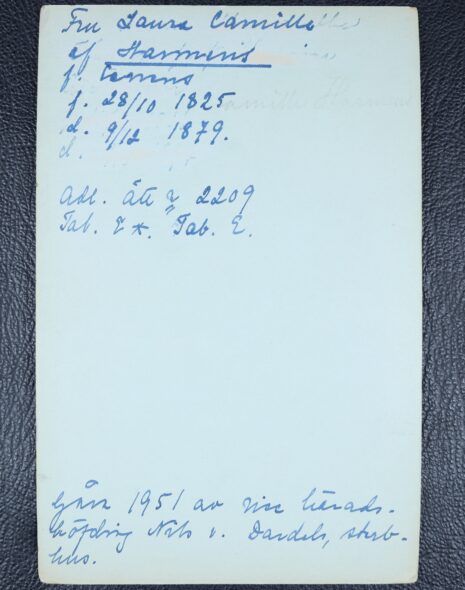 Fru Laura Camilla
af Harmens
f.
f. 28/10 1825
d. 9/12 1879.
d.
Adl. ätt n 2209
Tab. 7 *. Tab. E.
Gåva 1951 av vice härads-
höfding Nils v. Dardels, sterb-
hus.